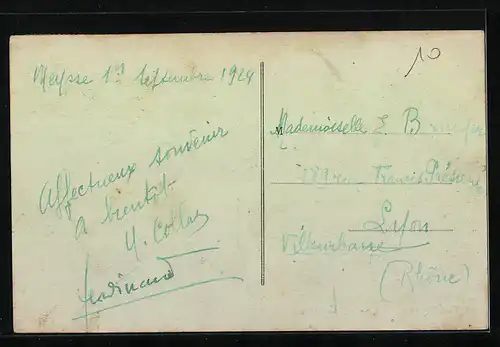 Meysse 1er Septembre 1924
Affectueux souvenir
A bientôt
Y. Collas
Ferdinand
10
Mademoiselle E. B
rue Francis Préssensé
Lyon
Villeurbanne
(Rhône)